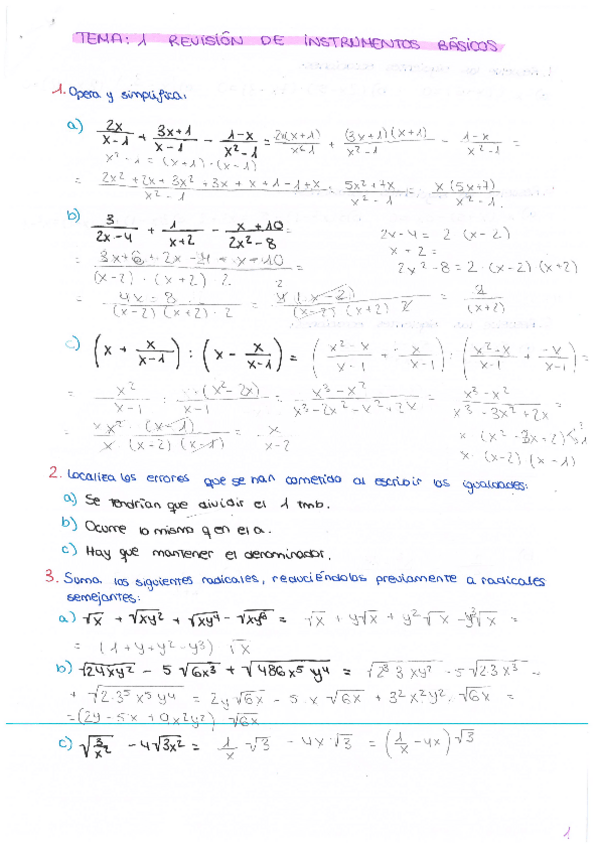 TEMA: 1 REVISIÓN DE INSTRUMENTOS BÁSICOS
1. Opera y simplifica:
a) 2x/(x-1) + (3x+1)/(x-1) - (1-x)/(x²-1) = 2x(x+1)/(x²-1) + (3x+1)(x+1)/(x²-1) - (1-x)/(x²-1) =
x²-1 = (x+1)·(x-1)
= (2x²+2x+3x²+3x+x+1-1+x)/(x²-1) = (5x²+7x)/(x²-1) = x(5x+7)/(x²-1)
b) 3/(2x-4) + 1/(x+2) - (x+10)/(2x²-8) =
2x-4 = 2(x-2)
x+2 =
2x²-8 = 2·(x-2)(x+2)
/((x-2)·(x+2)·2) =
= (4x-8)/((x-2)(x+2)·2) = 4(x-2)/((x-2)(x+2)2) = 2/(x+2)
c) (x + x/(x-1)) : (x - x/(x-1)) = ((x²-x)/(x-1) + x/(x-1)) : ((x²-x)/(x-1) + -x/(x-1)) =
= x²/(x-1) : (x²-2x)/(x-1) = (x³-x²)/(x³-2x²-x²+2x) = (x³-x²)/(x³-3x²+2x) =
= x x²·(x-1)/(x·(x-2)(x-1)) = x/(x-2)
x·(x²-3x+2)
x·(x-2)(x-1)
2. Localiza los errores que se han cometido al escribir las igualdades:
a) Se tendrían que dividir el 1 tmb.
b) Ocurre lo mismo q en el a.
c) Hay que mantener el denominador.
3. Suma los siguientes radicales, reduciéndolos previamente a radicales
semejantes:
a) √x + √xy² + √xy⁴ - √xy⁶ = √x + y√x + y²√x - y³√x =
= (1+y+y²-y³) √x
b) √24xy² - 5√6x³ + √486x⁵y⁴ = √2³3xy² - 5√2·3x³ +
+ √2·3⁵x⁵y⁴ = 2y√6x - 5·x√6x + 3²x²y²·√6x =
=(2y-5x+9x²y²) √6x
c) √3/x² - 4√3x² = 1/x·√3 - 4x·√3 = (1/x - 4x)√3
1